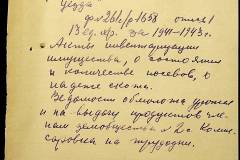 уезда
ф. 261 с/р 1658 опись 1
13 ед. хр. за 1941-1943 г.
Акты инвентаризации
имущества, о состоянии
и количестве посевов, о
падеже скота.
Ведомости обмолота урожая
и на выдачу продуктов чле-
нам земобщества
саровской на трудодни.